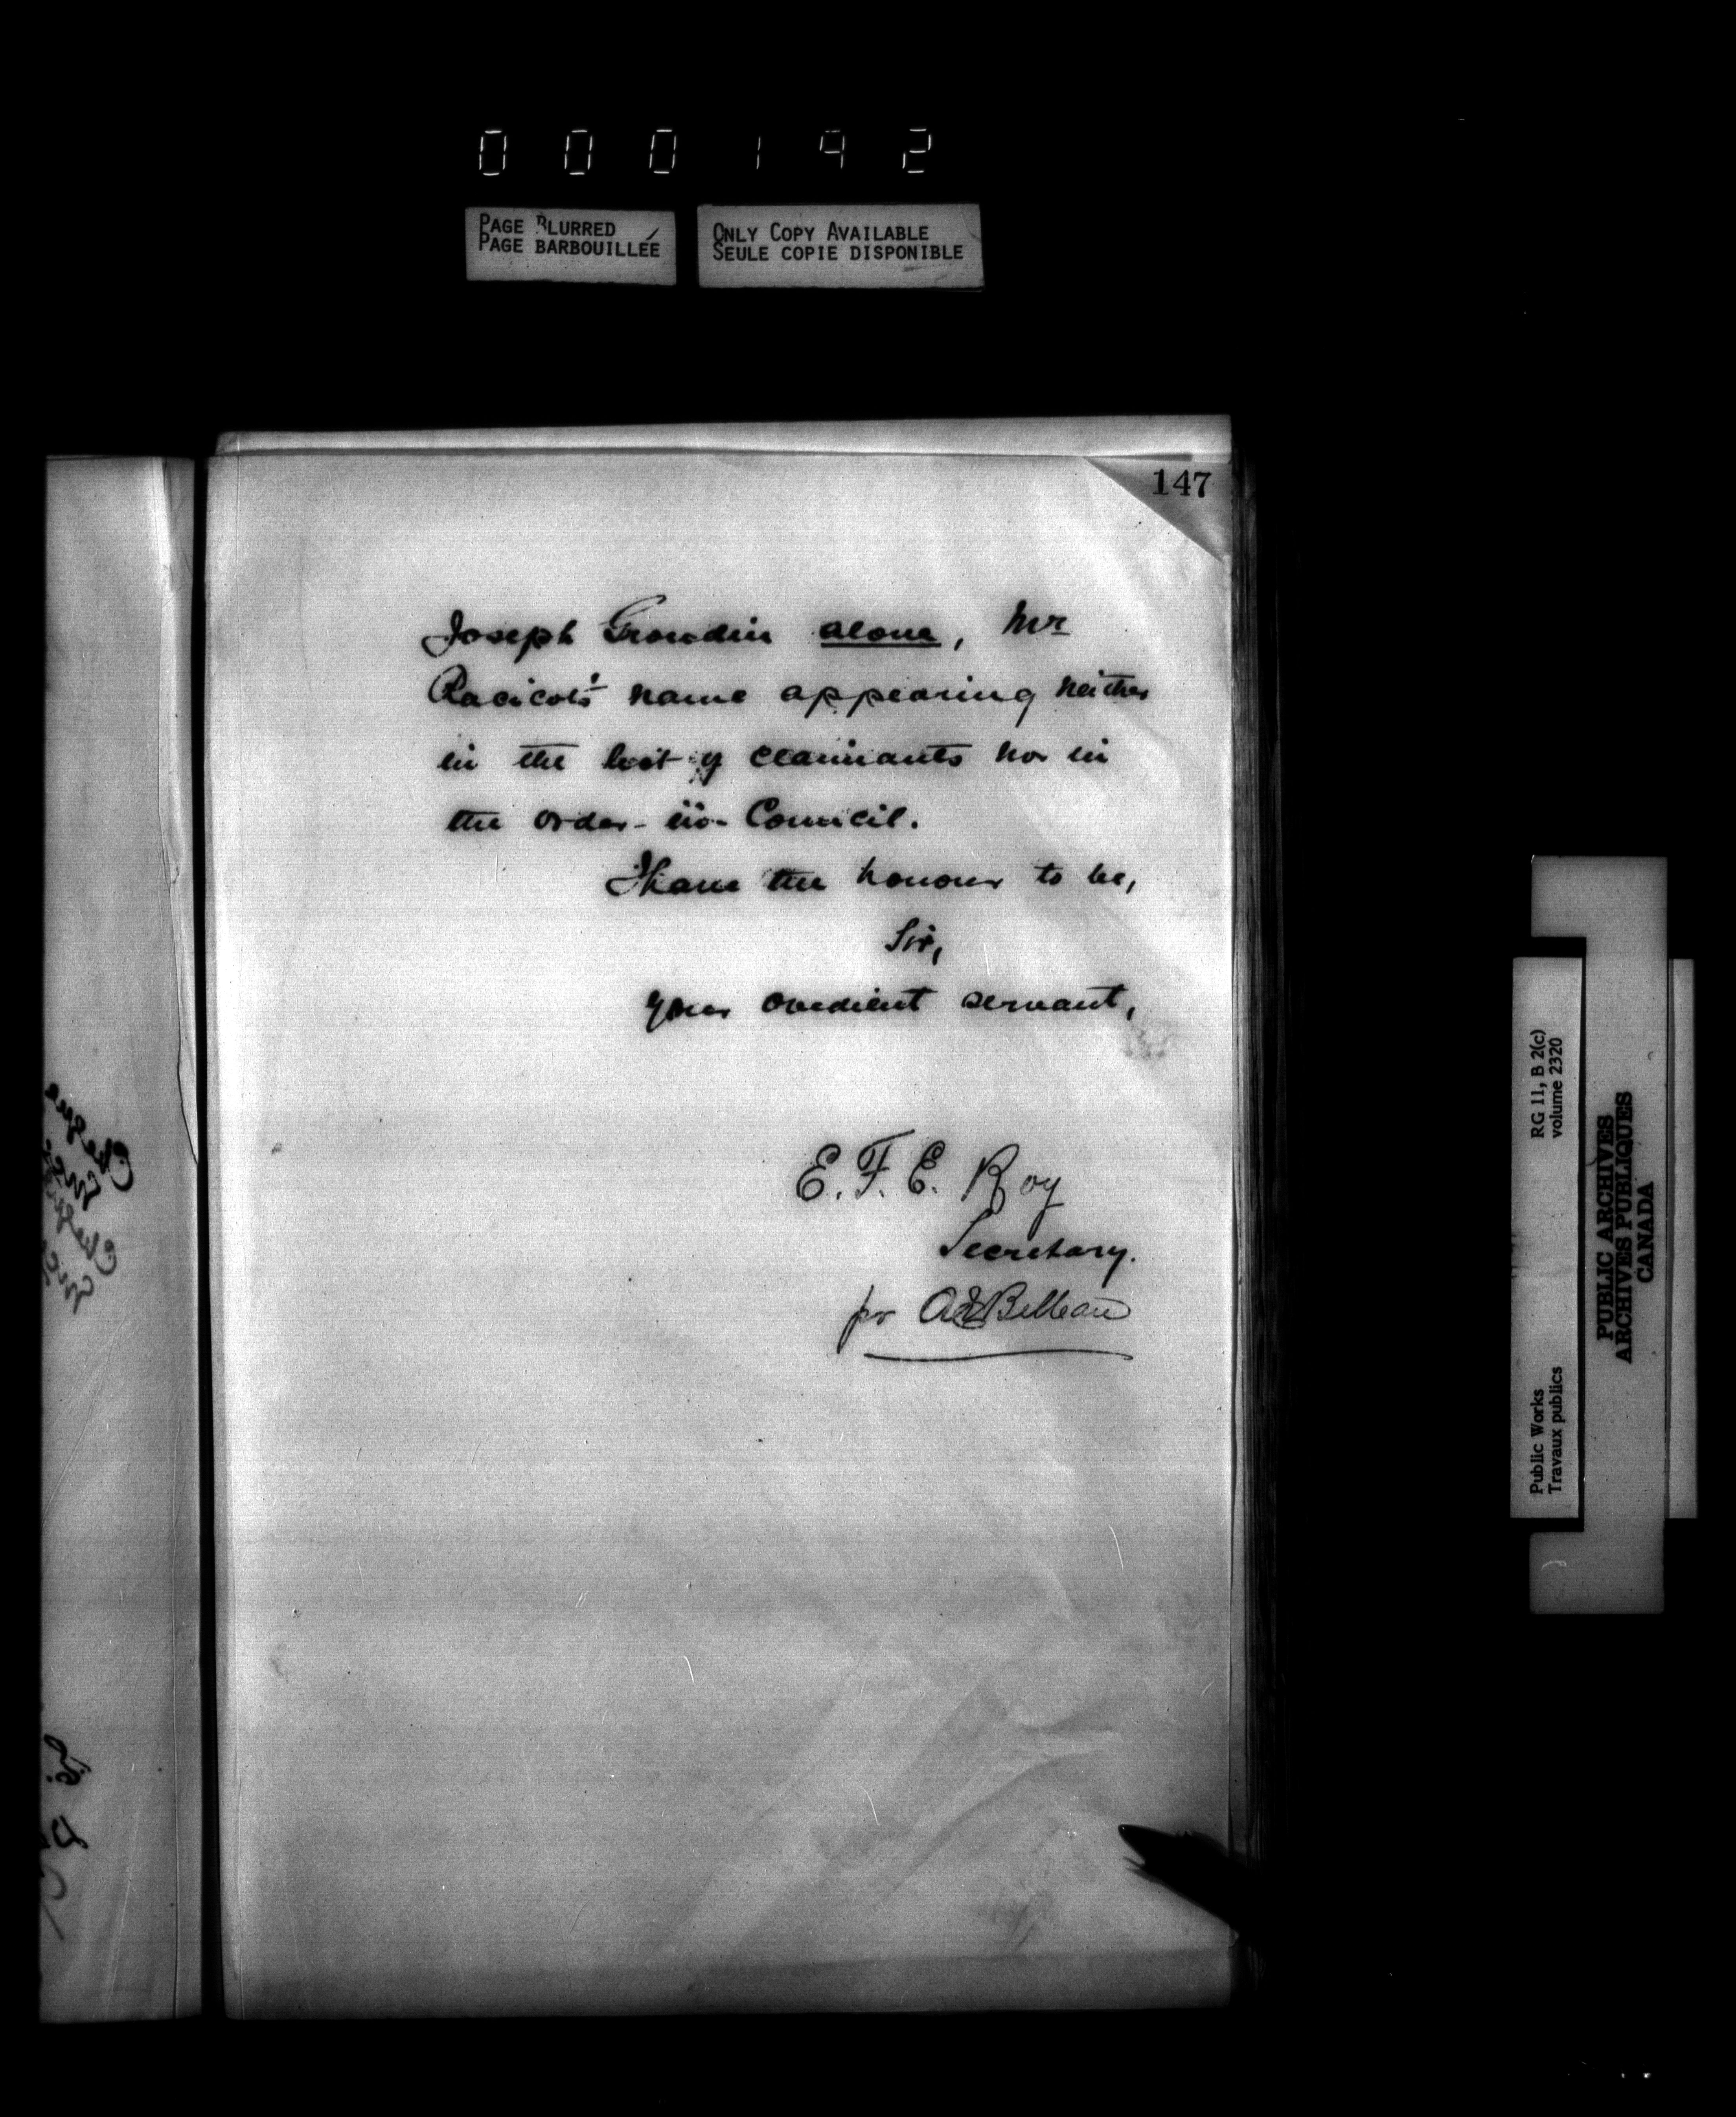 000192
PAGE BLURRED
PAGE BARBOUILLÉE
ONLY COPY AVAILABLE
SEULE COPIE DISPONIBLE
147
Joseph Grondin alone, Mr
Racicot's name appearing neither
in the list of claimants nor in
the Order-in-Council.
I have the honour to be,
Sir,
your obedient servant,
E. F. E. Roy
Secretary.
pr Belleau
Public Works
Travaux publics
RG 11, B 2(c)
volume 2320
PUBLIC ARCHIVES
ARCHIVES PUBLIQUES
CANADA